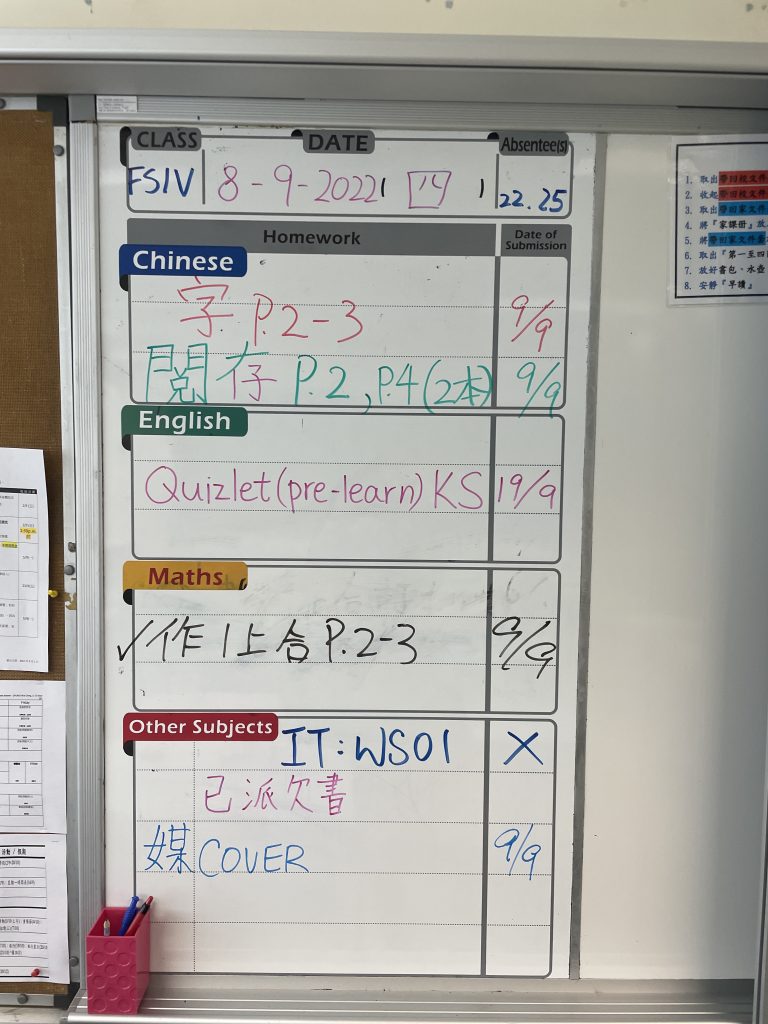 CLASS DATE Absentee(s)
FSIV 8-9-2022 (四) 22.25
Homework Date of Submission
Chinese
字 P.2-3 9/9
閱存 P.2, P.4(2本) 9/9
English
Quizlet(pre-learn) KS 19/9
Maths
✓作1上合P.2-3 9/9
Other Subjects
IT: WS01 X
已派欠書
媒COVER 9/9
1. 取出帶回校文件
2. 收起帶回校文件
3. 取出帶回家文件
4. 將『家課冊』放
5. 將帶回家文件
6. 取出『第一至四
7. 放好書包、水壺
8. 安靜『早讀』